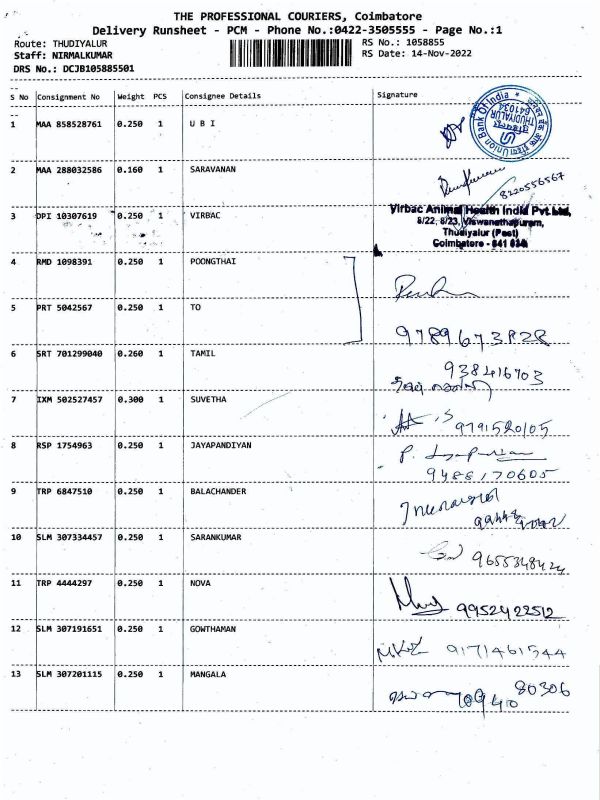 THE PROFESSIONAL COURIERS, Coimbatore
Delivery Runsheet - PCM - Phone No.:0422-3505555 - Page No.:1
Route: THUDIYALUR
RS No.: 1058855
Staff: NIRMALKUMAR
RS Date: 14-Nov-2022
DRS No.: DCJB105885501
S No Consignment No Weight PCS Consignee Details Signature
1 MAA 858528761 0.250 1 U B I
Union Bank Of India
THUDIYALUR
641034
2 MAA 288032586 0.160 1 SARAVANAN
8220556567
3 DPI 10307619 0.250 1 VIRBAC
Virbac Animal Health India Pvt. Ltd.,
8/22, 8/23, Viswanathapuram,
Thudiyalur (Post)
Coimbatore - 641 034
4 RMD 1098391 0.250 1 POONGTHAI
5 PRT 5042567 0.250 1 TO
9789673828
6 SRT 701299040 0.260 1 TAMIL
938416703
7 IXM 502527457 0.300 1 SUVETHA
9791520105
8 RSP 1754963 0.250 1 JAYAPANDIYAN
9488170605
9 TRP 6847510 0.250 1 BALACHANDER
10 SLM 307334457 0.250 1 SARANKUMAR
9655348424
11 TRP 4444297 0.250 1 NOVA
9952422512
12 SLM 307191651 0.250 1 GOWTHAMAN
9171461544
13 SLM 307201115 0.250 1 MANGALA
80306